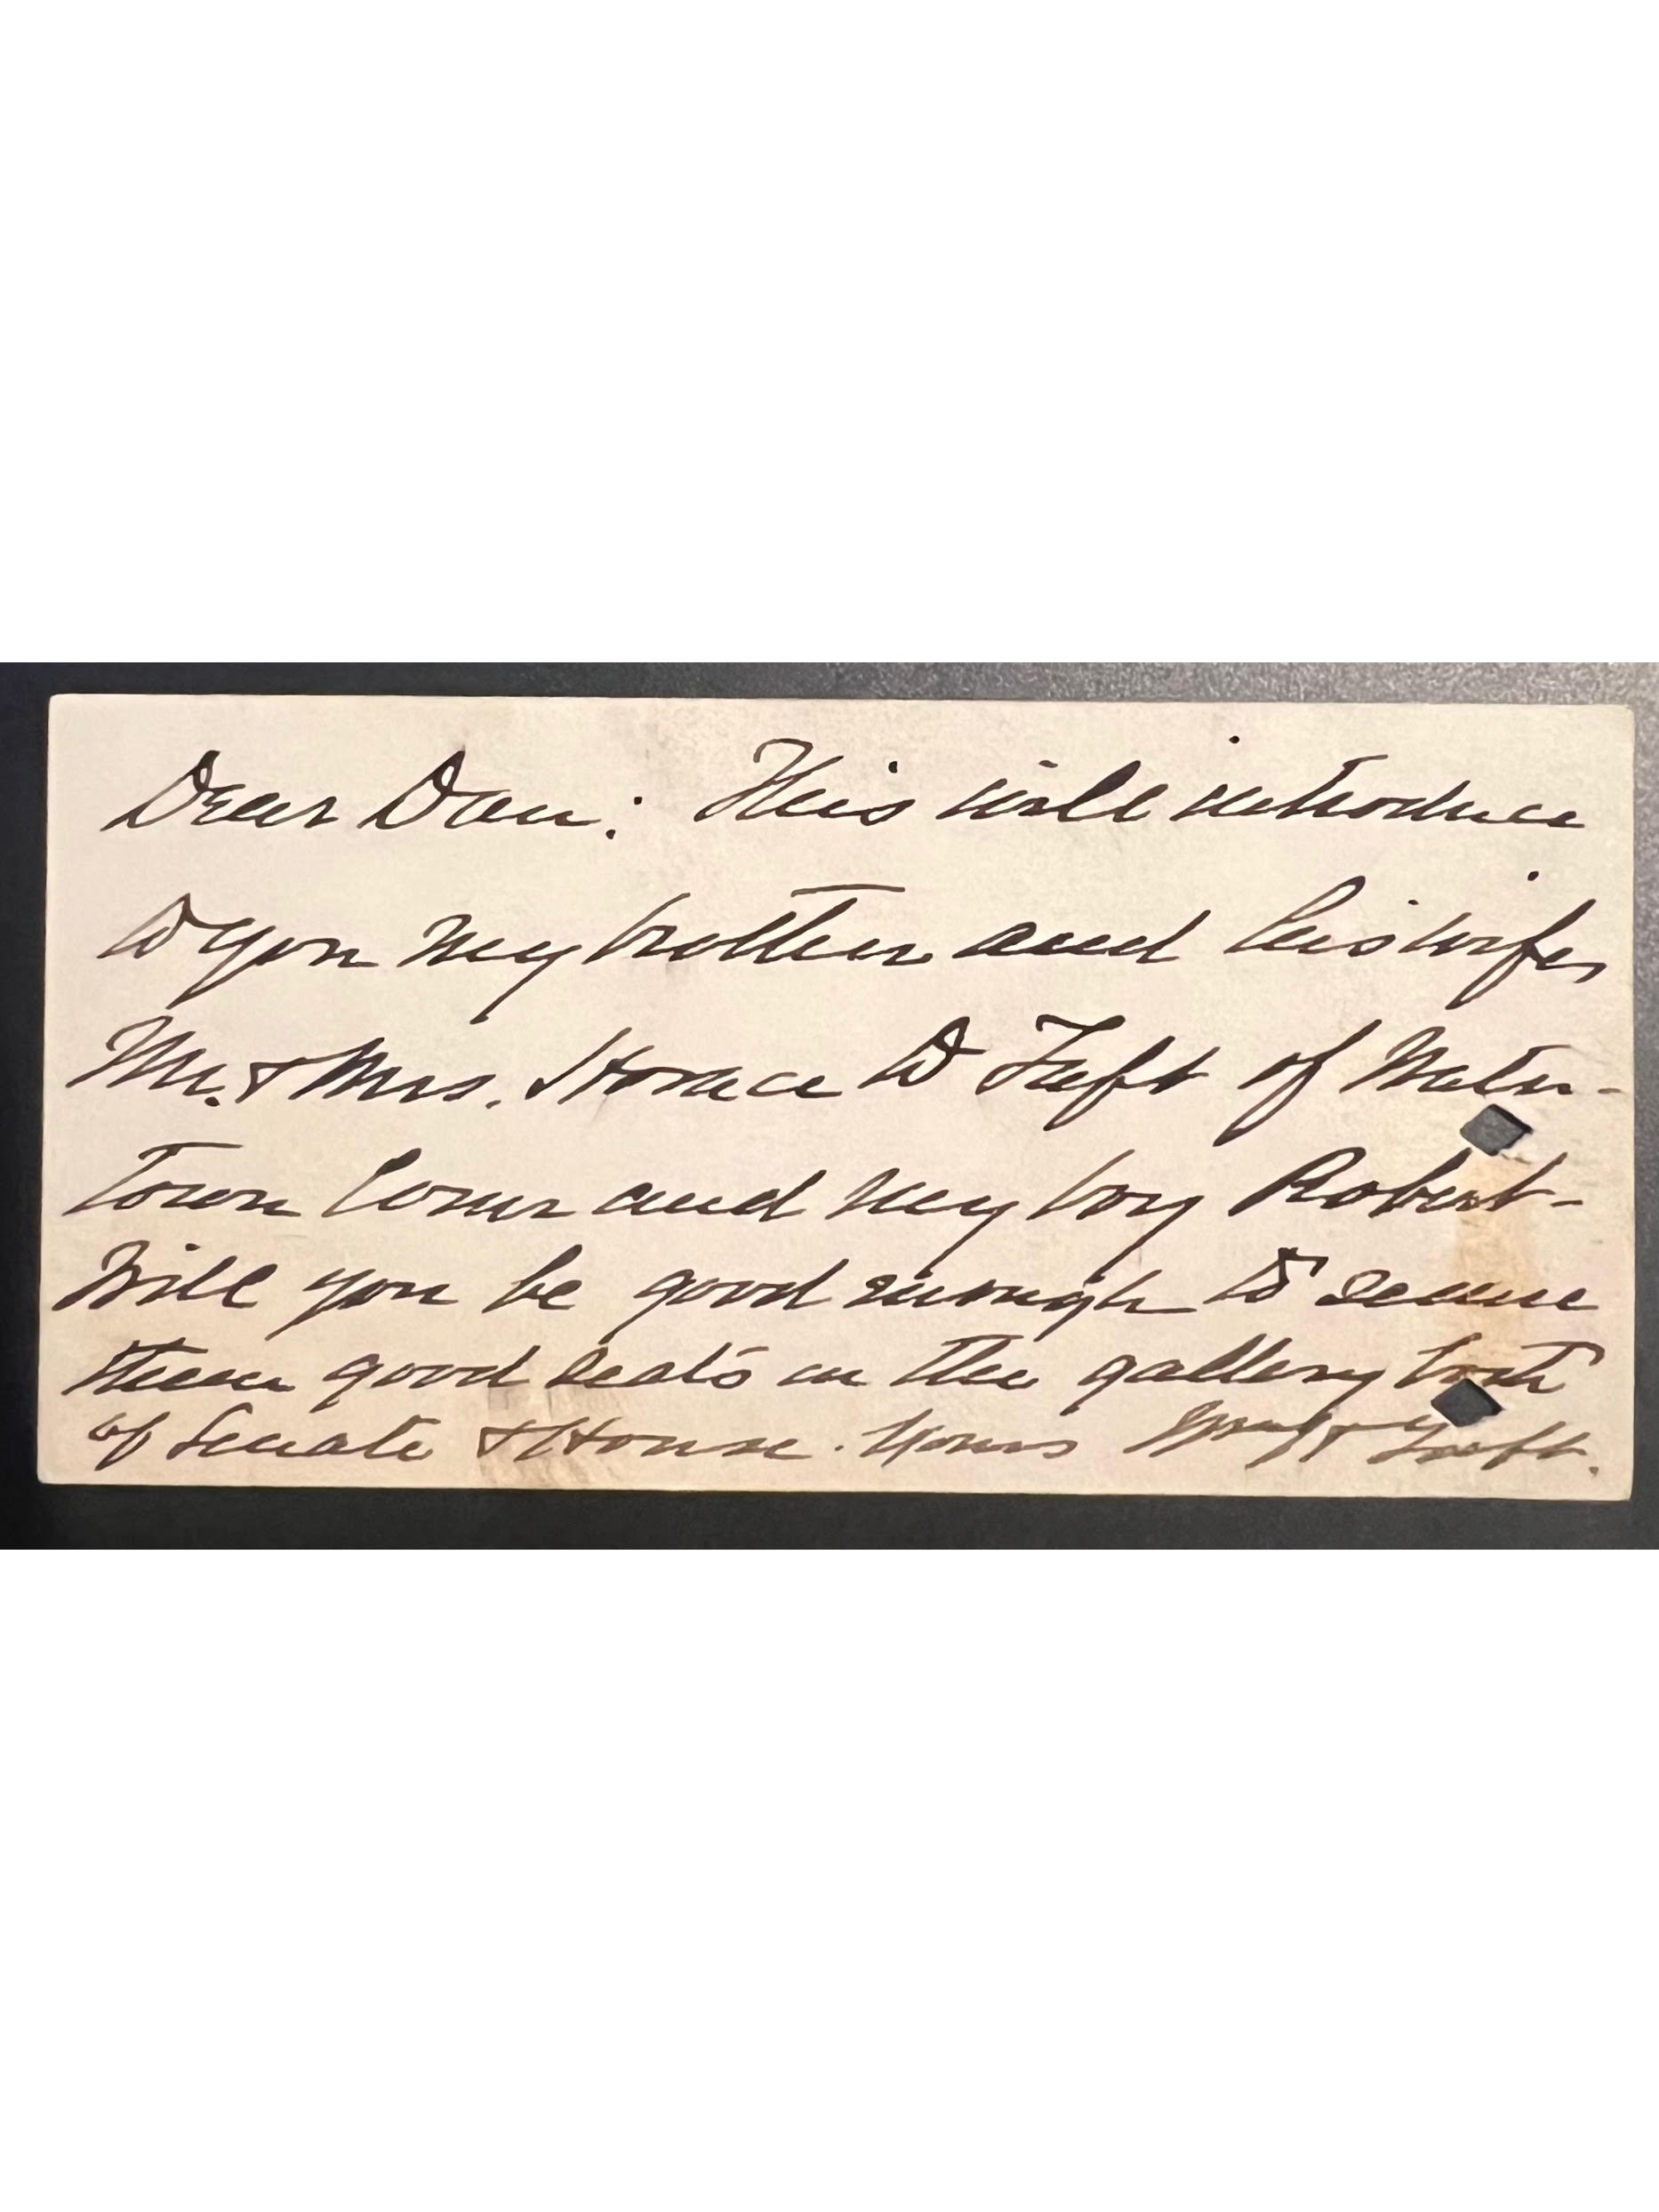 Dear Dan: This will introduce
to you my brother and his wife,
Mr. & Mrs. Horace D Taft of Water-
town Conn and my boy Robert-
Will you be good enough to secure
them good seats in the gallery both
of Senate & House. Yours Wm H Taft.